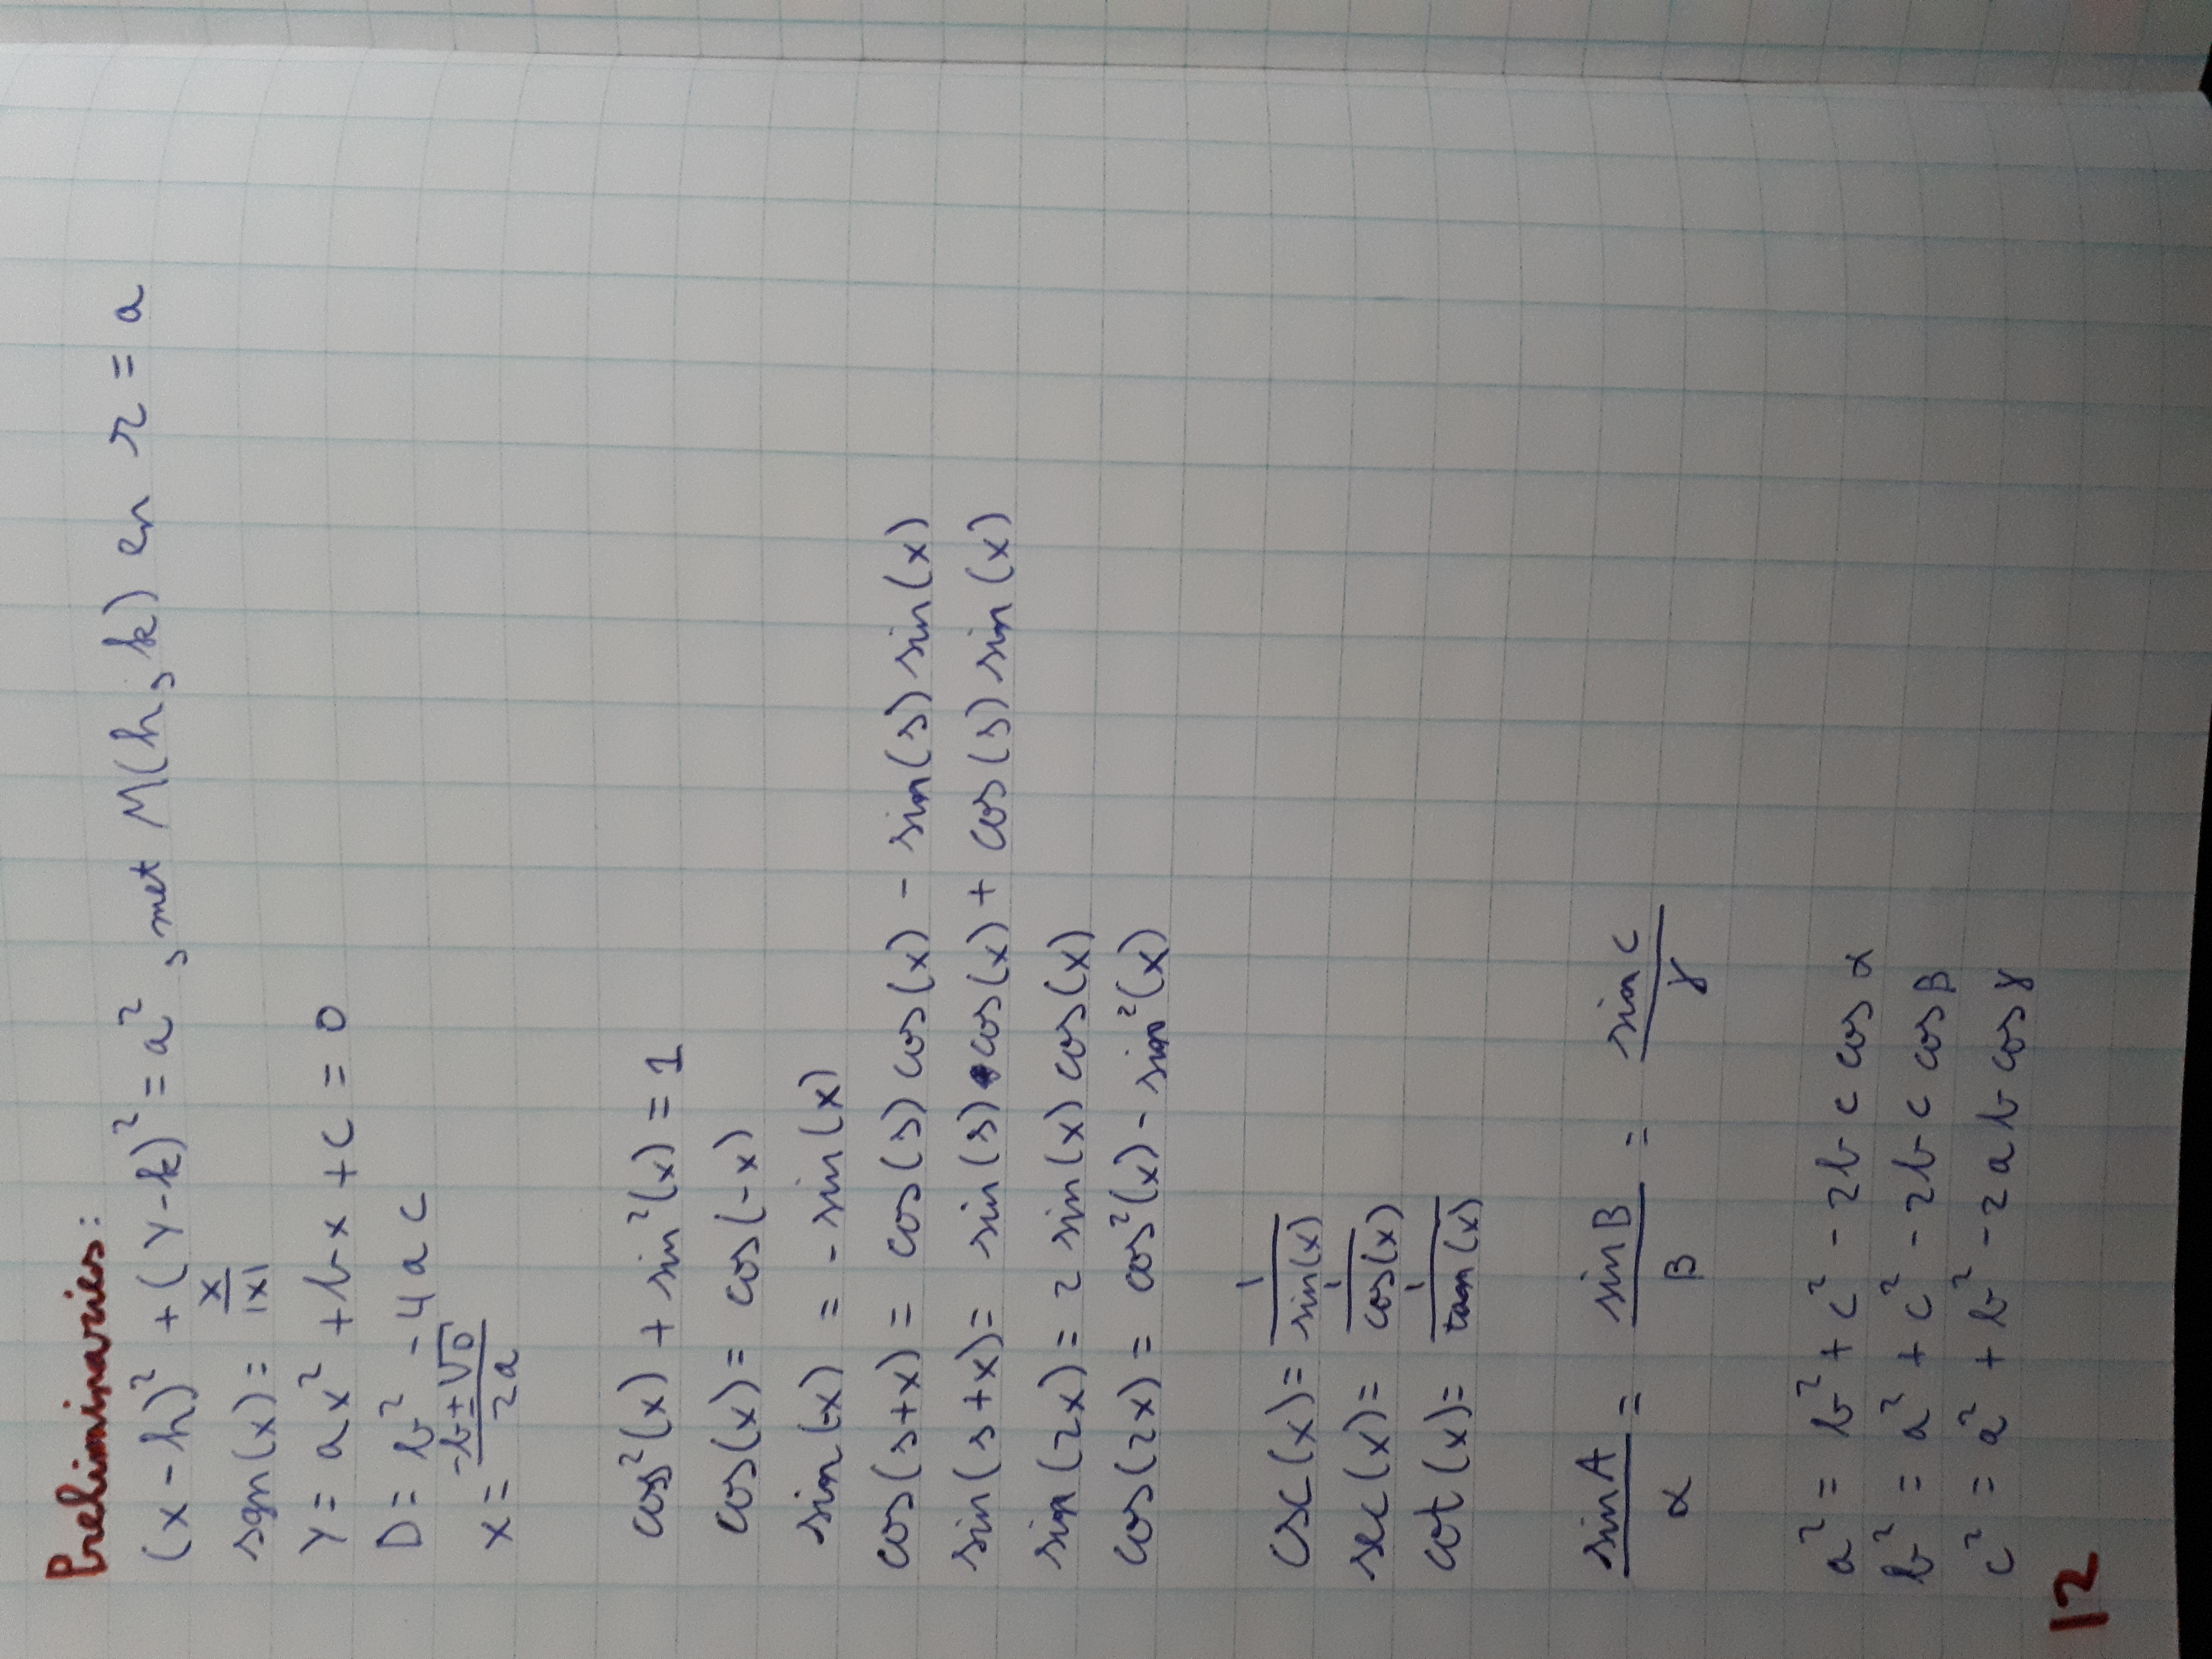 Preliminaries:
(x-h)² + (y-k)² = a², met M(h, k) en r = a
sgn(x) = x/|x|
y = ax² + bx + c = 0
D = b² - 4ac
x = -b±√D/2a
cos²(x) + sin²(x) = 1
cos(x) = cos(-x)
sin(-x) = -sin(x)
cos(s+x) = cos(s) cos(x) - sin(s) sin(x)
sin(s+x) = sin(s) cos(x) + cos(s) sin(x)
sin(2x) = 2 sin(x) cos(x)
cos(2x) = cos²(x) - sin²(x)
csc(x) = 1/sin(x)
sec(x) = 1/cos(x)
cot(x) = 1/tan(x)
sin A/α = sin B/β = sin C/γ
a² = b² + c² - 2bc cos α
b² = a² + c² - 2bc cos β
c² = a² + b² - 2ab cos γ
12